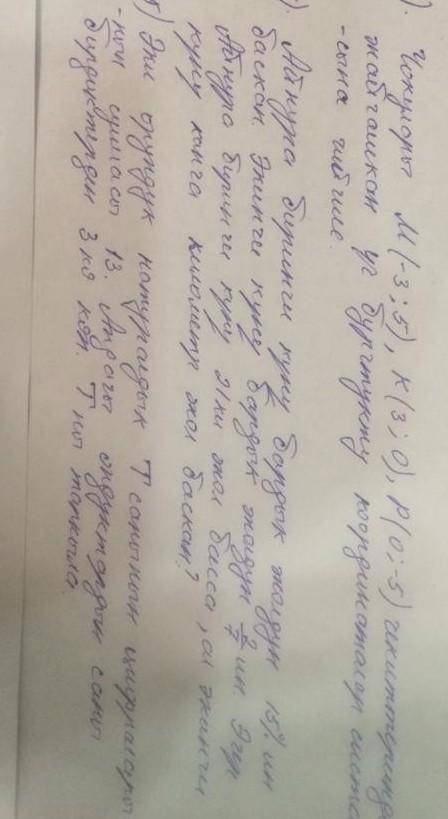 ). Чокулары М(-3;5), К(3;0), Р(0;-5) чекиттеринде
жайгашкан үч бурчтукту координаталар систе
-сына чийгиле.
). Айнура биринчи күнү бардык жолдун 15% ин
баскан. Экинчи күнү бардык жолдун ин. Эгер
Айнура биринчи күнү 21км жол басса, ал экинчи
күнү канча километр жол баскан?
5) Эки орундук натуралдык Т санынын цифралары
-нын суммасы 13. Андагы ондуктардын саны
бирдиктерден 3 кө көп. Т ны тапкыла.